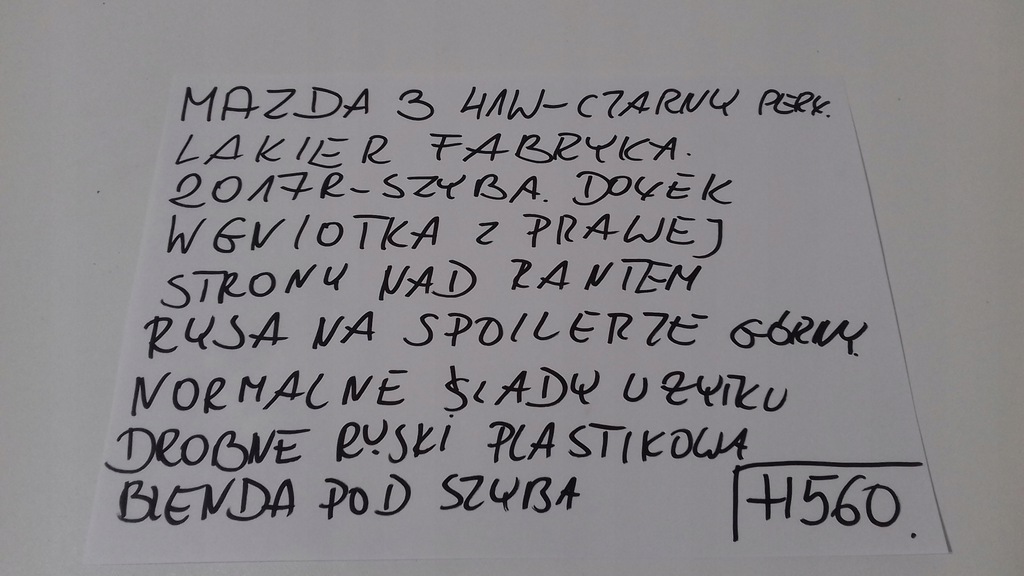 MAZDA 3 41W-CZARNY PERŁ.
LAKIER FABRYKA.
2017R-SZYBA. DOŁEK
WGNIOTKA Z PRAWEJ
STRONY NAD RANTEM
RYSA NA SPOILERZE GÓRNY.
NORMALNE ŚLADY UŻYTKU
DROBNE RYSKI PLASTIKOWA
BLENDA POD SZYBA
H560.